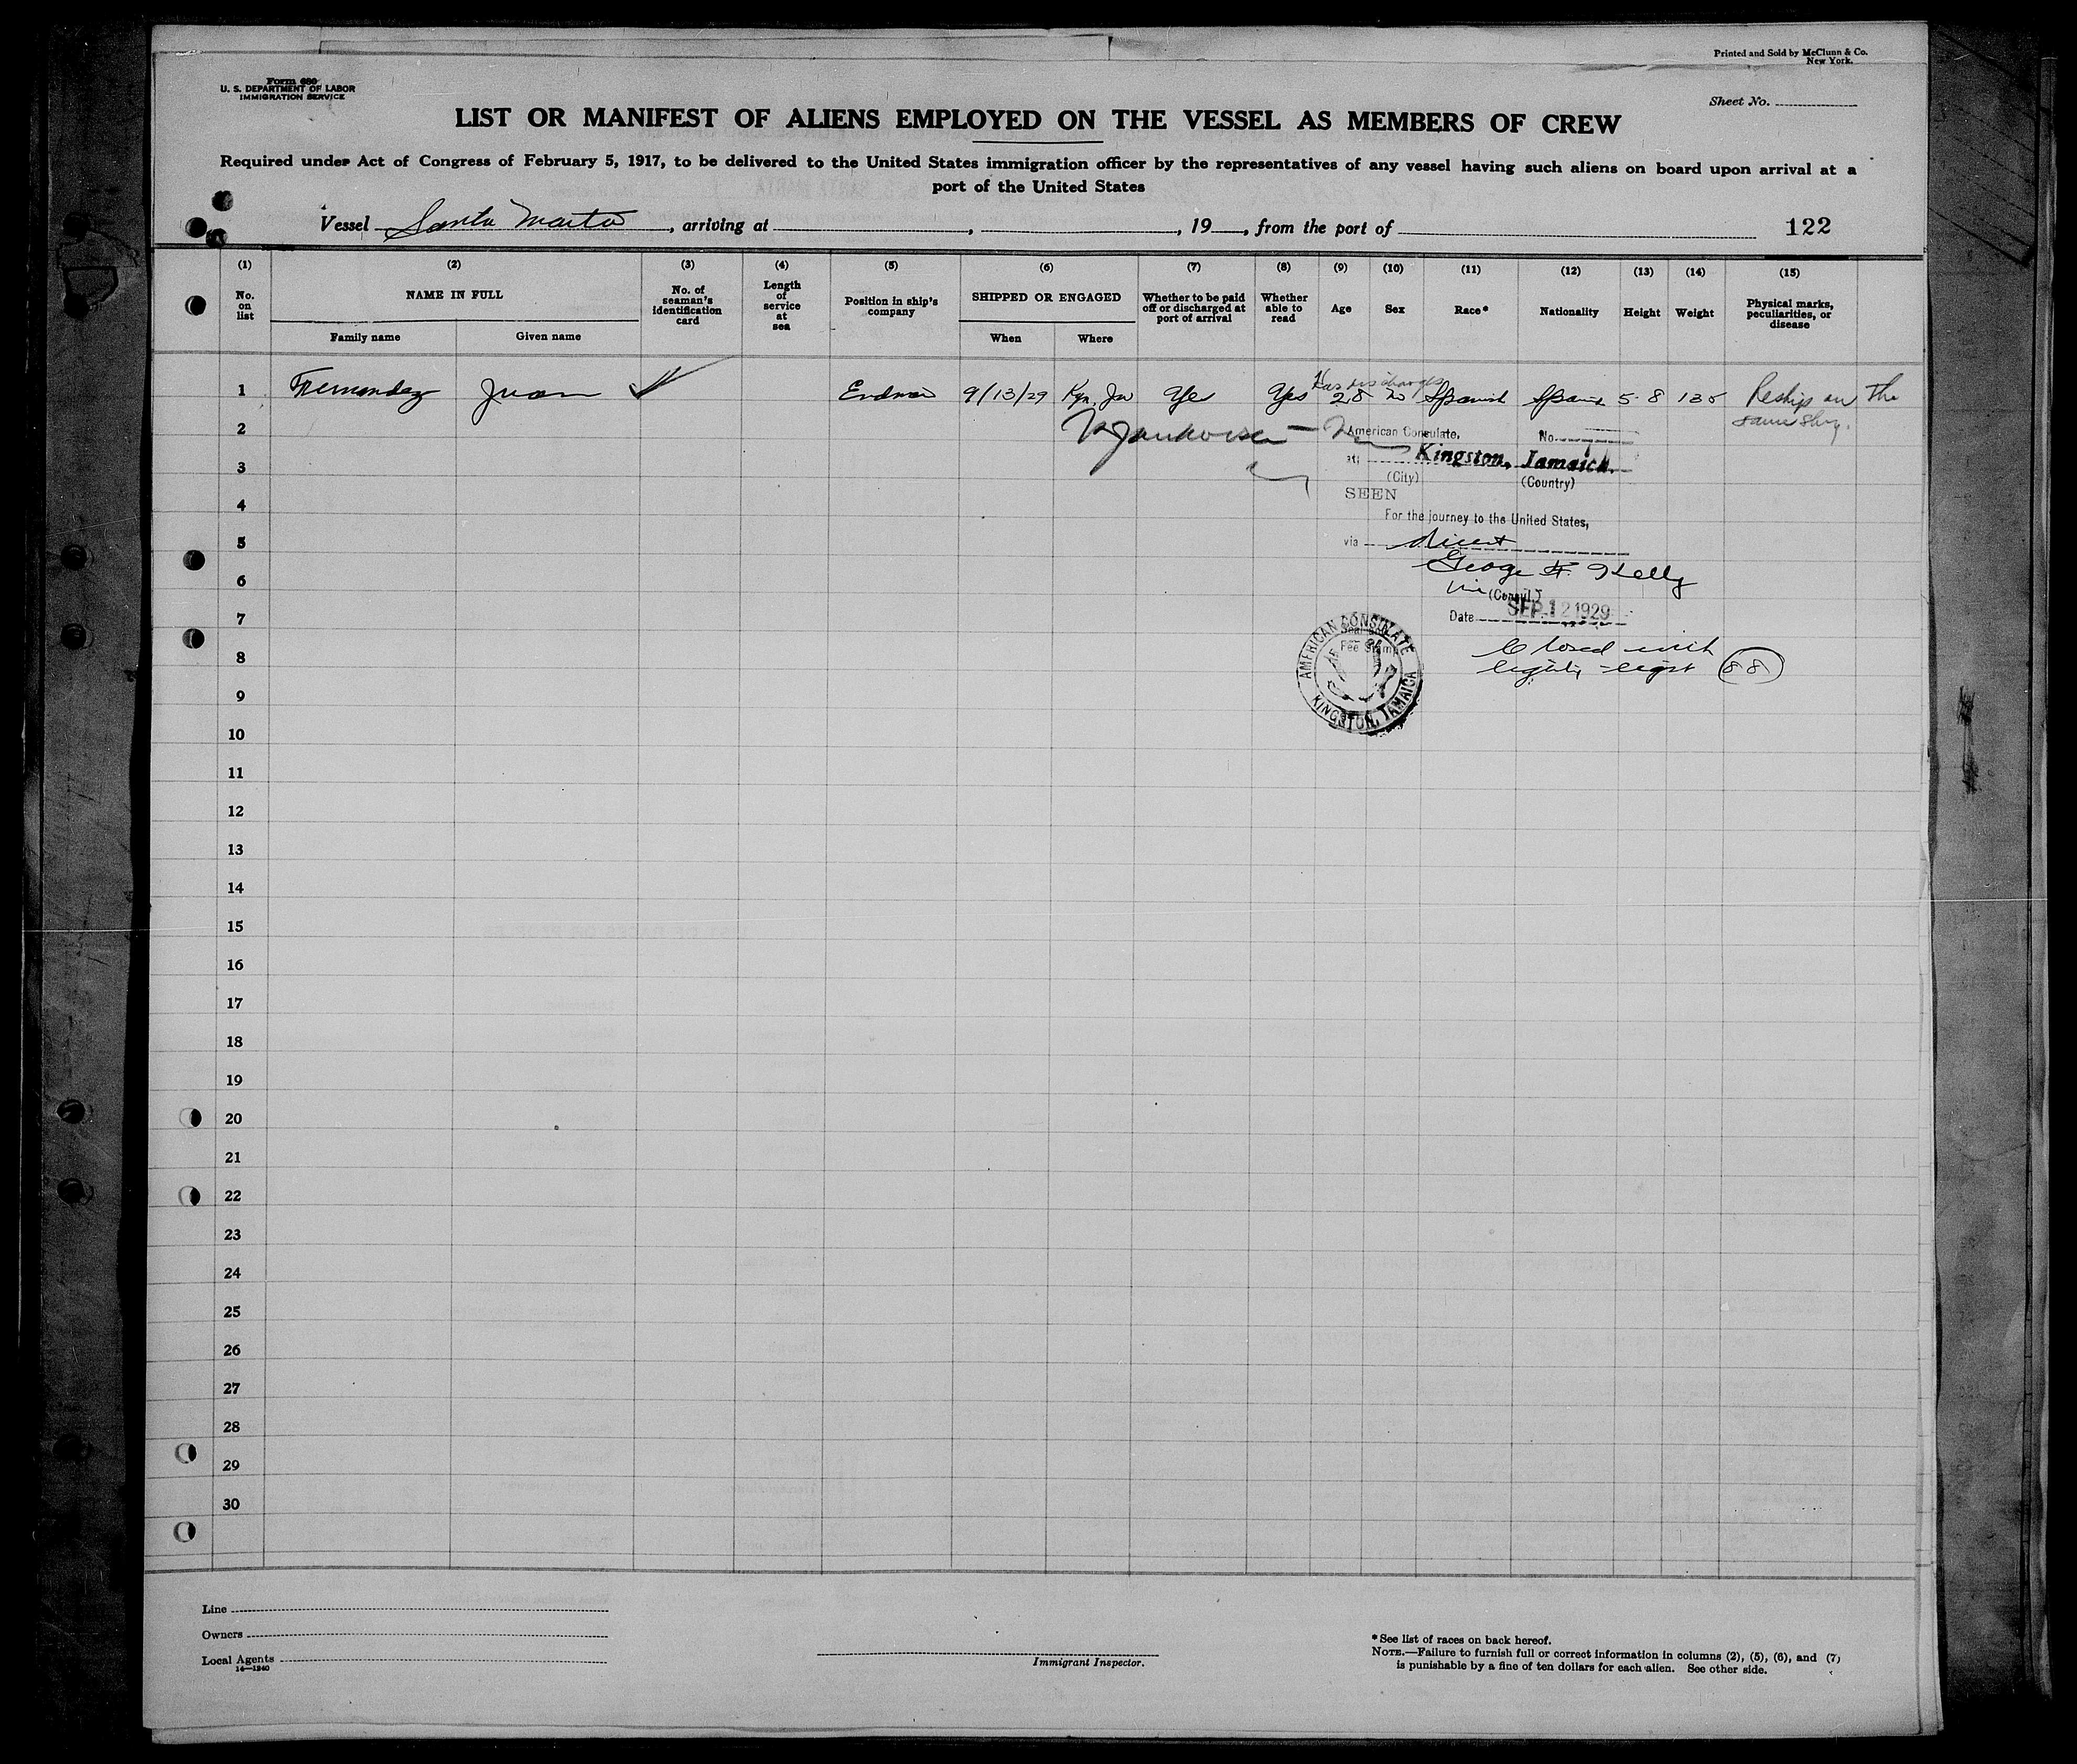 Printed and Sold by McClunn & Co.
New York.
Form 680
U. S. DEPARTMENT OF LABOR
IMMIGRATION SERVICE
Sheet No.
LIST OR MANIFEST OF ALIENS EMPLOYED ON THE VESSEL AS MEMBERS OF CREW
Required under Act of Congress of February 5, 1917, to be delivered to the United States immigration officer by the representatives of any vessel having such aliens on board upon arrival at a
port of the United States
Vessel Santa Marta, arriving at , , 19 , from the port of 122
(1) (2) (3) (4) (5) (6) (7) (8) (9) (10) (11) (12) (13) (14) (15)
No. on list
NAME IN FULL
Family name Given name
No. of seaman's identification card
Length of service at sea
Position in ship's company
SHIPPED OR ENGAGED
When Where
Whether to be paid off or discharged at port of arrival
Whether able to read
Age
Sex
Race*
Nationality
Height
Weight
Physical marks, peculiarities, or disease
Has discharges
1 Fernandez Juan 9/13/29 Kgn, Ja Yes Yes 28 Spanish Spain 5-8 135 Reship on the
same ship.
2
American Consulate, No.
3
at Kingston, Jamaica.
(City) (Country)
4
SEEN
For the journey to the United States,
5
via direct
6
George F. Kelly
Vice (Consul.)
7
Date SEP 12 1929
AMERICAN CONSULATE
KINGSTON, JAMAICA
Fee Stamp
8
Closed with
eighty-eight (88)
9
10
11
12
13
14
15
16
17
18
19
20
21
22
23
24
25
26
27
28
29
30
Line
Owners
Local Agents
14—1240
Immigrant Inspector.
* See list of races on back hereof.
NOTE.—Failure to furnish full or correct information in columns (2), (5), (6), and (7)
is punishable by a fine of ten dollars for each alien. See other side.